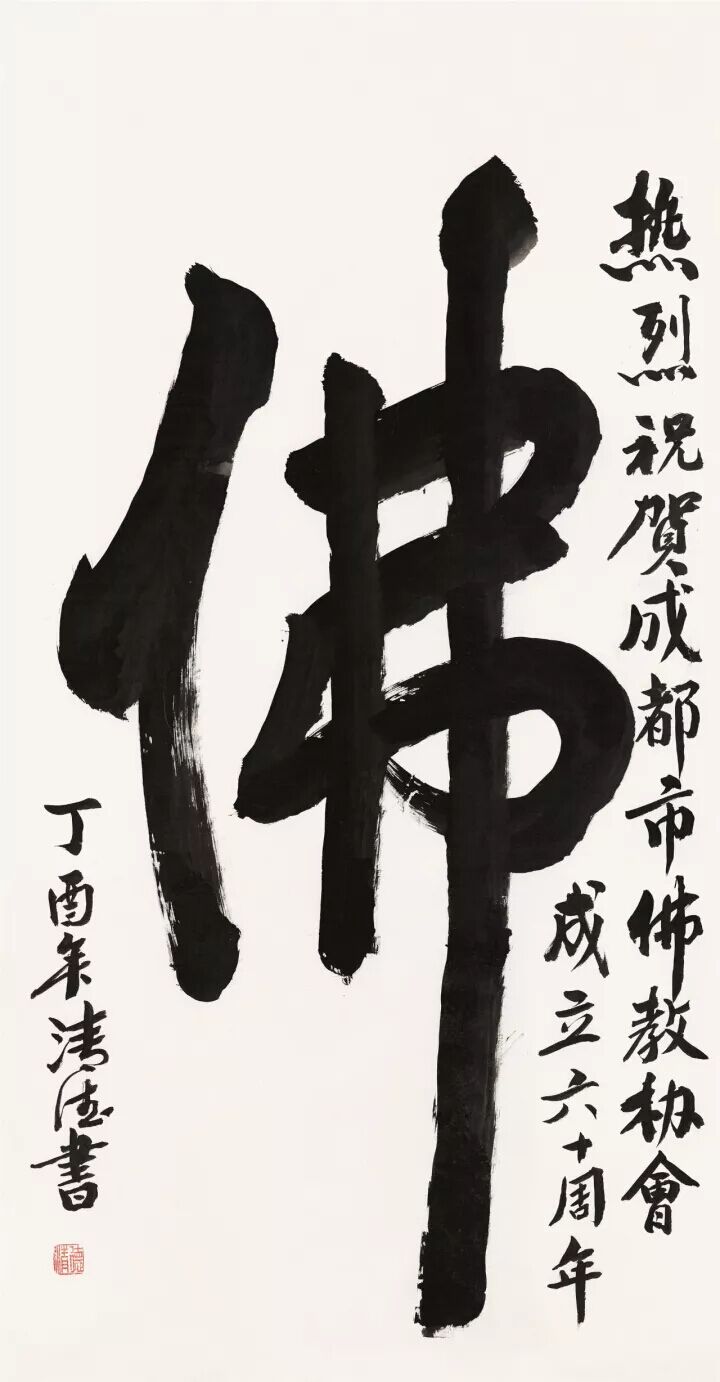 熱烈祝賀成都市佛教協會
成立六十周年
佛
丁酉年清德書